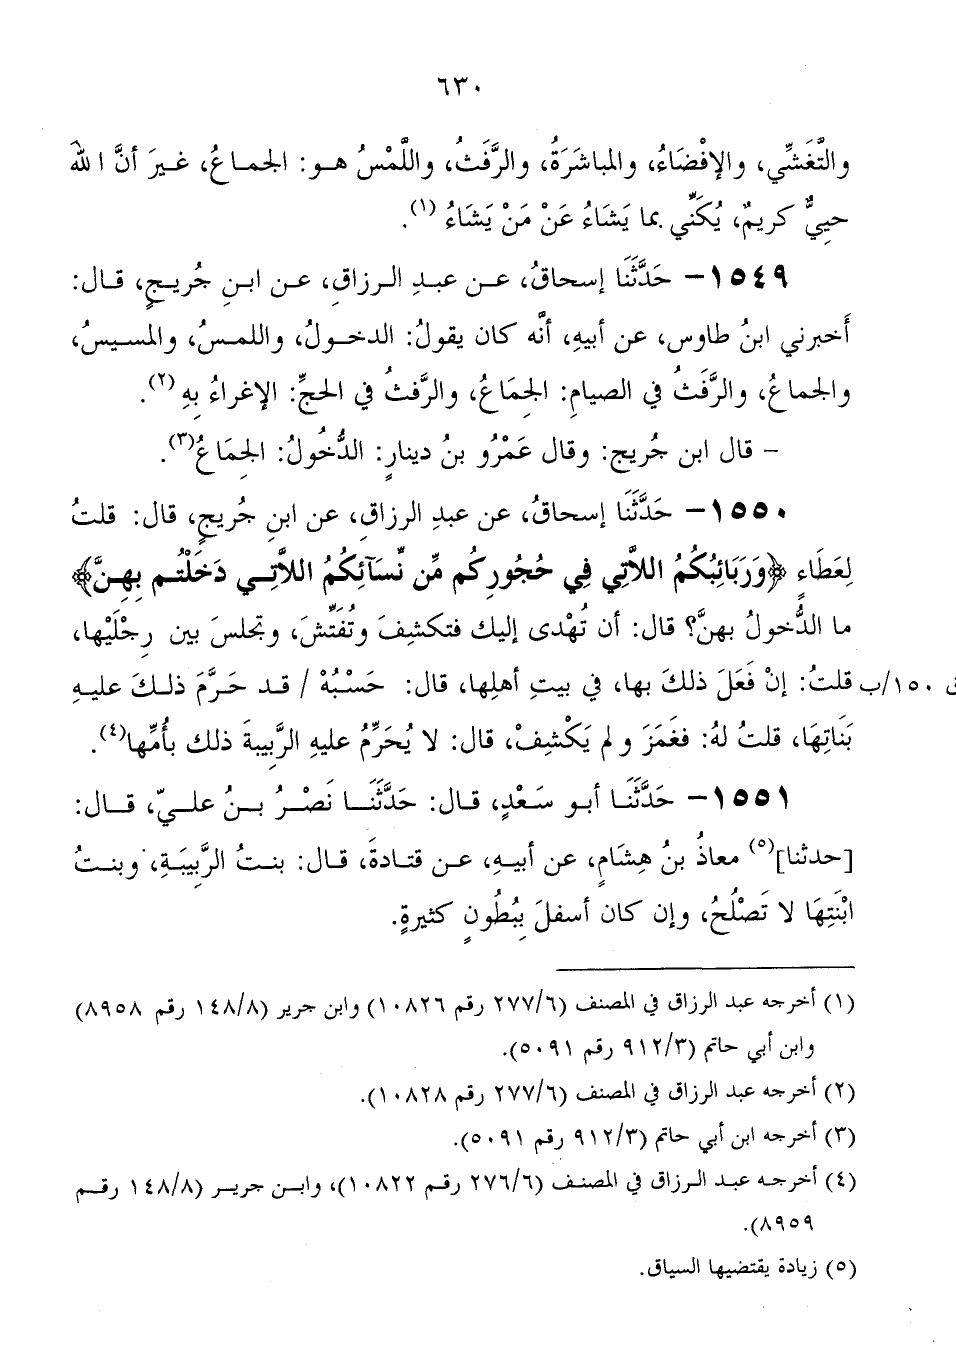 ٦٣٠
والتَّغَشِّي، والإفْضَاءُ، والمباشَرَةُ، والرَّفَثُ، واللَّمْسُ هـو: الجماعُ، غيرَ أنَّ اللهَ
حييٌّ كريمٌ، يُكَنِّي بما يَشَاءُ عَنْ مَنْ يَشَاءُ (١).
١٥٤٩- حَدَّثَنَا إسحاقُ، عن عبدِ الرزاقِ، عن ابنِ جُريجٍ، قال:
أَخبرني ابنُ طاوس، عن أبيهِ، أنَّه كان يقولُ: الدخولُ، واللمسُ، والمسيسُ،
والجماعُ، والرَّفَثُ في الصيامِ: الجِمَاعُ، والرَّفثُ في الحجِّ: الإغراءُ بِهِ (٢).
- قال ابن جُريج: وقال عَمْرُو بنُ دينارٍ: الدُّخُولُ: الجِمَاعُ(٣).
١٥٥٠- حَدَّثَنَا إسحاقُ، عن عبدِ الرزاقِ، عن ابنِ جُريجٍ، قال: قلتُ
لِعَطَاءٍ ﴿وَرَبَائِبُكُمُ اللاَّتِي فِي حُجُورِكُم مِّن نِّسَآئِكُمُ اللاَّتِي دَخَلْتُم بِهِنَّ﴾
ما الدُّخولُ بهنَّ؟ قال: أن تُهْدى إليك فتكشِفَ وتُفَتِّشَ، وتجلسَ بين رِجْلَيْها،
ق ١٥٠/ب قلتُ: إنْ فَعَلَ ذلكَ بها، في بيتِ أهلِها، قال: حَسْبُهُ / قد حَرَّمَ ذلكَ عليهِ
بَنَاتِهَا، قلتُ لهُ: فغَمَزَ ولم يَكْشِفْ، قال: لا يُحَرِّمُ عليهِ الرَّبيبةَ ذلك بأُمِّها(٤).
١٥٥١- حَدَّثَنَا أبو سَعْدٍ، قال: حَدَّثَنَا نَصْرُ بنُ عليّ، قال:
[حدثنا](٥) معاذُ بنُ هِشَامٍ، عن أبيهِ، عن قتادةَ، قال: بنتُ الرَّبِيبَةِ، وبنتُ
ابْنَتِهَا لا تَصْلُحُ، وإن كان أسفلَ بِبُطُونٍ كثيرةٍ.
(١) أخرجه عبد الرزاق في المصنف (٢٧٧/٦ رقم ١٠٨٢٦) وابن جرير (١٤٨/٨ رقم ٨٩٥٨)
وابن أبي حاتم (٩١٢/٣ رقم ٥٠٩١).
(٢) أخرجه عبد الرزاق في المصنف (٢٧٧/٦ رقم ١٠٨٢٨).
(٣) أخرجه ابن أبي حاتم (٩١٢/٣ رقم ٥٠٩١).
(٤) أخرجه عبد الرزاق في المصنف (٢٧٦/٦ رقم ١٠٨٢٢)، وابن جرير (١٤٨/٨ رقم
٨٩٥٩).
(٥) زيادة يقتضيها السياق.